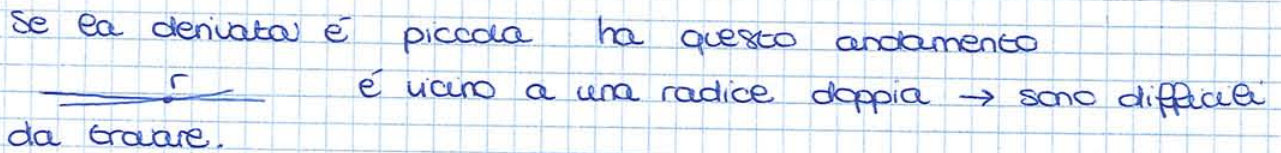 se la derivata é piccola ha questo andamento
r é vicino a una radice doppia → sono difficili
da trovare.